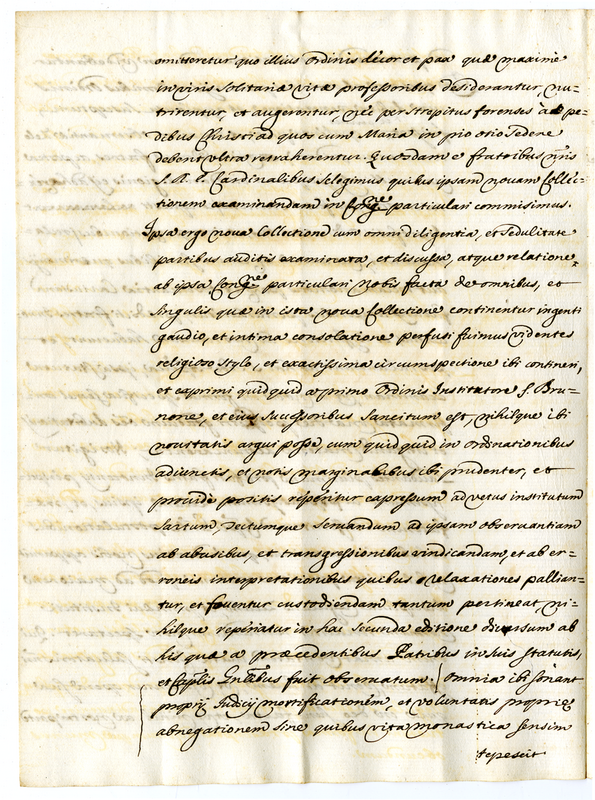 omitteretur quo illius Ordinis decor et pax quæ maxime
in viris solitariæ vitæ professoribus desiderantur, nu=
trirentur, et augerentur, nec per strepitus forenses à pe=
dibus Christi ad quos cum Maria in pio otio sedere
debent ultra retraherentur. Quosdam è fratribus nris
S. R. E. Cardinalibus selegimus quibus ipsam novam Collec=
tionem examinandam in Congne particulari commisimus.
Ipsa ergo nova Collectione cum omni diligentia, et sedulitate
partibus auditis examinata, et discussa, atque relatione
ab ipsa Congne particulari Nobis facta de omnibus, et
singulis quæ in ista nova Collectione continentur ingenti
gaudio, et intima consolatione perfusi fuimus videntes
religioso stylo, et exactissima circumspectione ibi contineri,
et exprimi quidquid a primo Ordinis Institutore S. Bru=
none, et eius Successoribus sancitum est, nihilque ibi
novitatis argui posse, cum quidquid in Ordinationibus
adiunctis, et notis marginalibus ibi prudenter, et
provide positis reperitur expressum ad vetus institutum
sartum, tectumque servandum ad ipsam observantiam
ab abusibus, et transgressionibus vindicandam, et ab er=
roneis interpretationibus quibus relaxationes pallian=
tur, et foventur custodiendam tantum pertineat ni=
hilque reperiatur in hac secunda editione diversum ab
his quæ a præcedentibus Patribus in suis statutis,
et Caplis Gnlibus fuit observatum. Omnia ibi sonant
proprij Iudicij mortificationem, et voluntatis propriæ
abnegationem sine quibus vita monastica sensim
tepescit